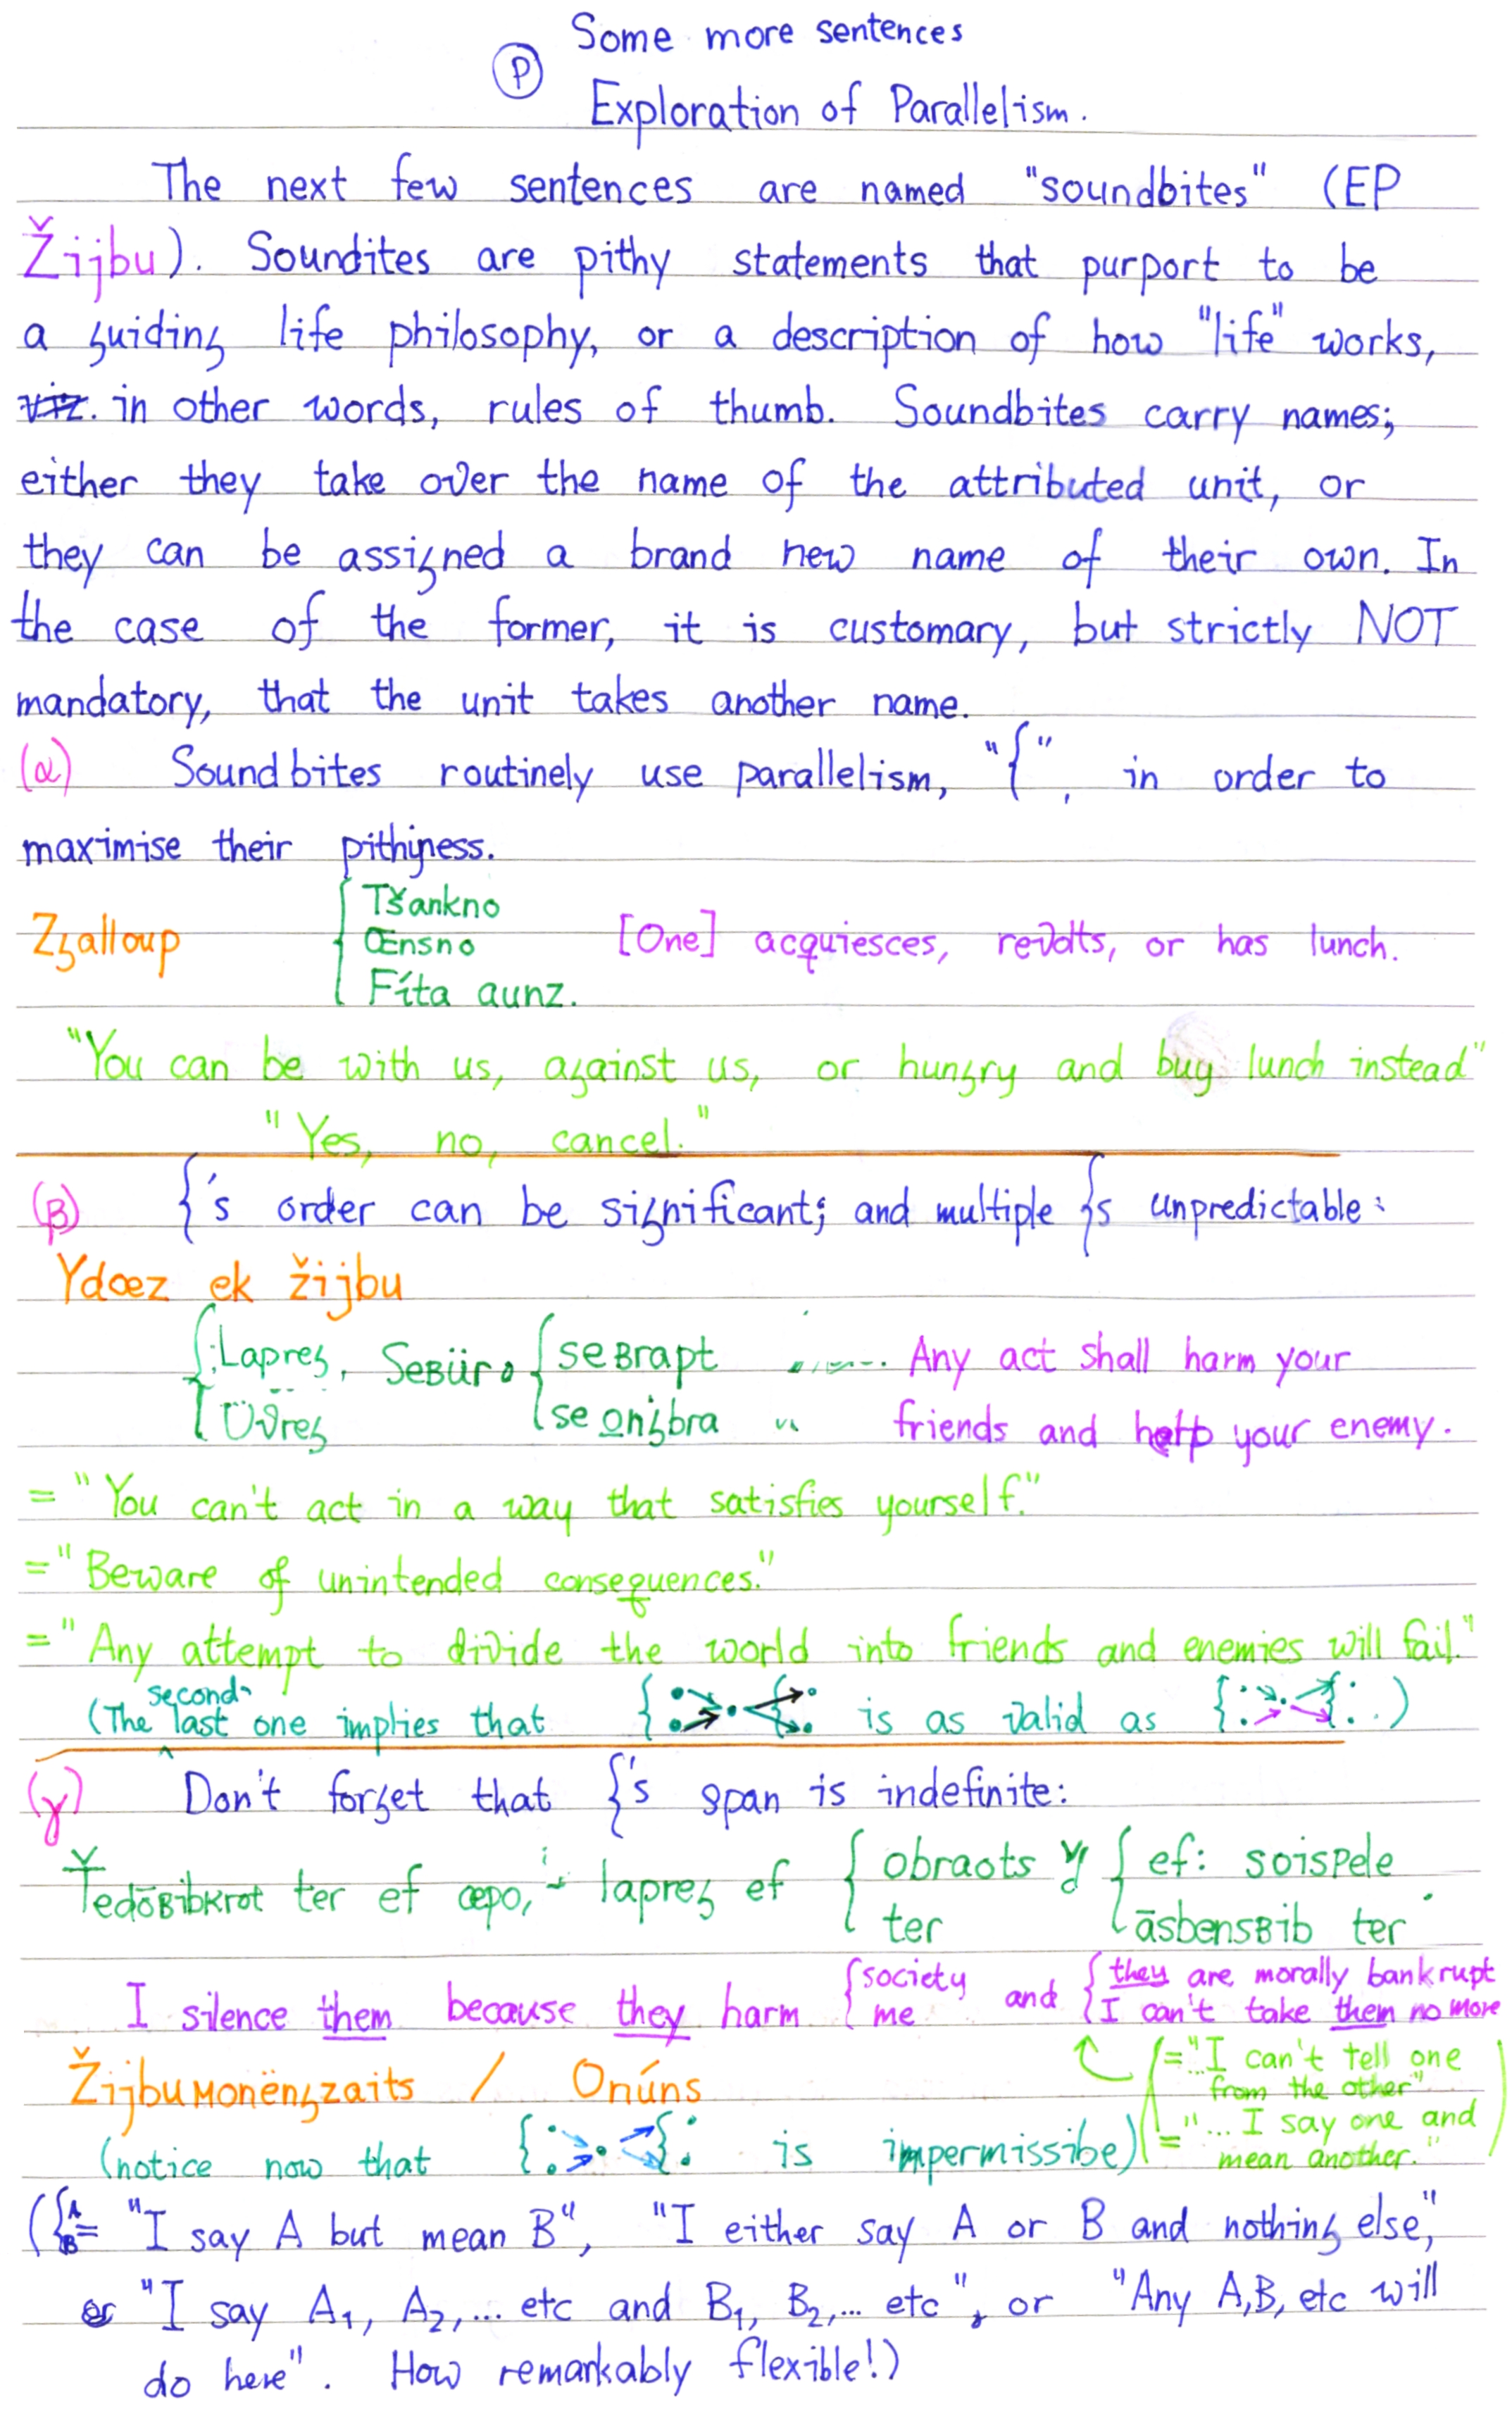 Some more sentences
Ⓟ
Exploration of Parallelism.
The next few sentences are named "soundbites" (EP
Žijbu). Soundites are pithy statements that purport to be
a guiding life philosophy, or a description of how "life" works,
viz. in other words, rules of thumb. Soundbites carry names;
either they take over the name of the attributed unit, or
they can be assigned a brand new name of their own. In
the case of the former, it is customary, but strictly NOT
mandatory, that the unit takes another name.
(α) Soundbites routinely use parallelism, "{", in order to
maximise their pithyness.
Zȝalloup { Tšankno
Œnsno
Fíta aunz.
[One] acquiesces, revolts, or has lunch.
"You can be with us, against us, or hungry and buy lunch instead"
"Yes, no, cancel."
(β) {'s order can be significant; and multiple {s unpredictable:
Ydœz ek žijbu
seʙrapt Any act shall harm your
friends and help your enemy.
= "You can't act in a way that satisfies yourself."
= "Beware of unintended consequences."
= "Any attempt to divide the world into friends and enemies will fail."
(The second last one implies that { is as valid as { )
(γ) Don't forget that {'s span is indefinite:
ter ef œpo, lapreȝ ef { obraots { ef: soispele
ter āsbensʙib ter
I silence them because they harm { society and { they are morally bankrupt
me I can't take them no more
Žijbuмonënȝzaits / Onúns
(= "I can't tell one
from the other"
(notice now that { is impermissibe)
= "... I say one and
mean another."
({A B = "I say A but mean B", "I either say A or B and nothing else,"
or "I say A₁, A₂,... etc and B₁, B₂,... etc", or "Any A,B, etc will
do here". How remarkably flexible!)